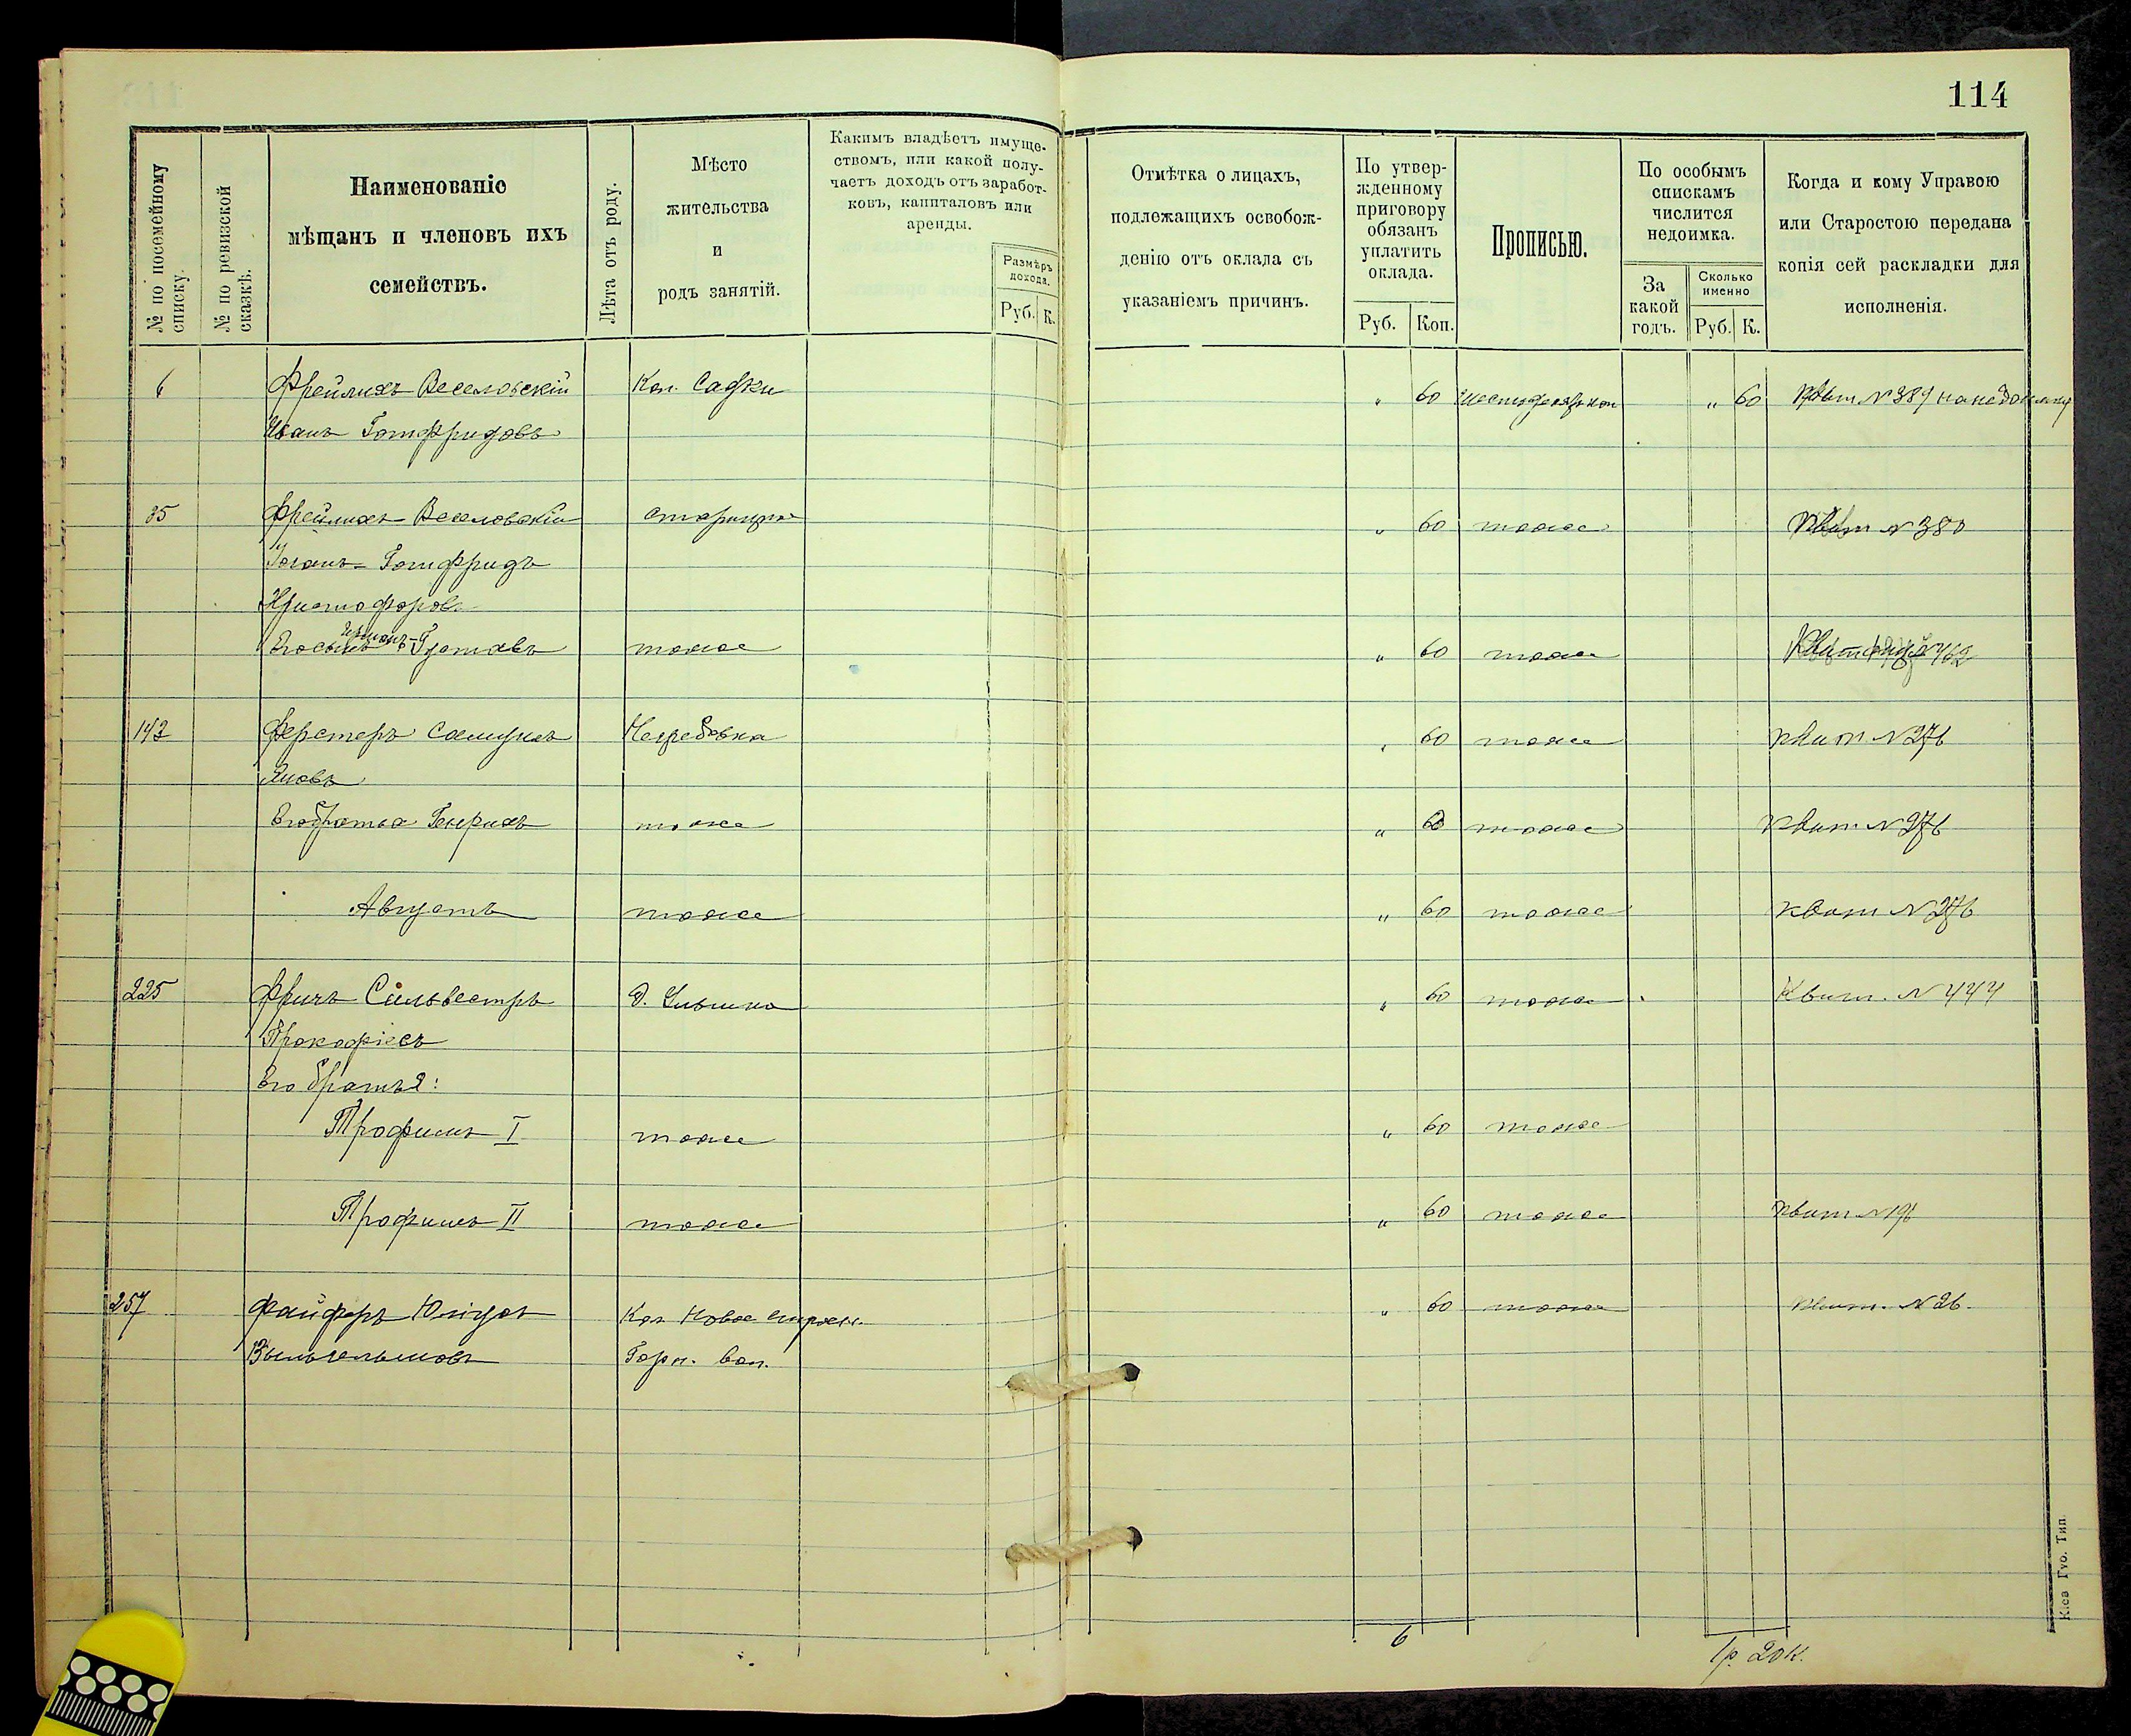 114
№ по посемейному списку.
№ по ревизской сказкѣ.
Наименованіе
мѣщанъ и членовъ ихъ
семействъ.
Лѣта отъ роду.
Мѣсто
жительства
и
родъ занятій.
Какимъ владѣетъ имуще-
ствомъ, или какой полу-
чаетъ доходъ отъ заработ-
ковъ, капиталовъ или
аренды.
Размѣръ
дохода.
Руб. К.
Отмѣтка о лицахъ,
подлежащихъ освобож-
денію отъ оклада съ
указаніемъ причинъ.
По утвер-
жденному
приговору
обязанъ
уплатить
оклада.
Руб. Коп.
Прописью.
По особымъ
спискамъ
числится
недоимка.
За
какой
годъ.
Сколько
именно
Руб. К.
Когда и кому Управою
или Старостою передана
копія сей раскладки для
исполненія.
6 Фрейлихъ Веселовскій Кол. Садки " 60 шестьдесятъ коп " 60 Квит №389
Иванъ Готфридовъ
35 Фрейлихъ Веселовскій " 60 тоже Квит №380
Іоганъ-Готфридъ
Христофоровъ
Его сынъ Густавъ тоже " 60 тоже
143 Ферстеръ Самуилъ Негребовка " 60 тоже Квит №276
Яковъ
Его братья Генрихъ тоже " 60 тоже Квит №276
Августъ тоже " 60 тоже Квит №276
225 Фричъ Сильвестръ " 60 тоже Квит. №444
Прокофіевъ
Его братья:
Трофимъ I тоже " 60 тоже
Трофимъ II тоже " 60 тоже Квит №196
257 Файферъ Юліусъ Кол. Новое " 60 тоже Квит. №26.
Вильгельмовъ Горн. вол.
6
1 р. 20 к.
Кіев. Губ. Тип.